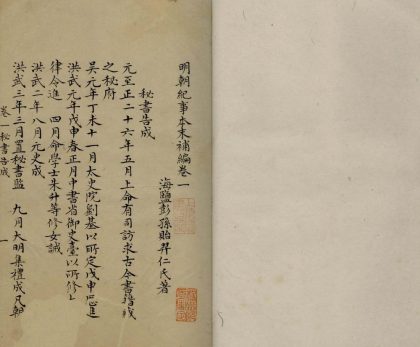 明朝紀事本末補編卷一
海鹽彭孫貽羿仁氏著
秘書告成
元至正二十六年五月上命有司訪求古今書籍藏
之秘府
吳元年丁未十一月太史院劉基以所定戊申曆進
洪武元年戊申春正月中書省御史臺以所修
律令進 四月命學士朱升等修女誡
洪武二年八月元史成
洪武三年三月置秘書監 九月大明集禮成凡朝
卷一秘書告成 一